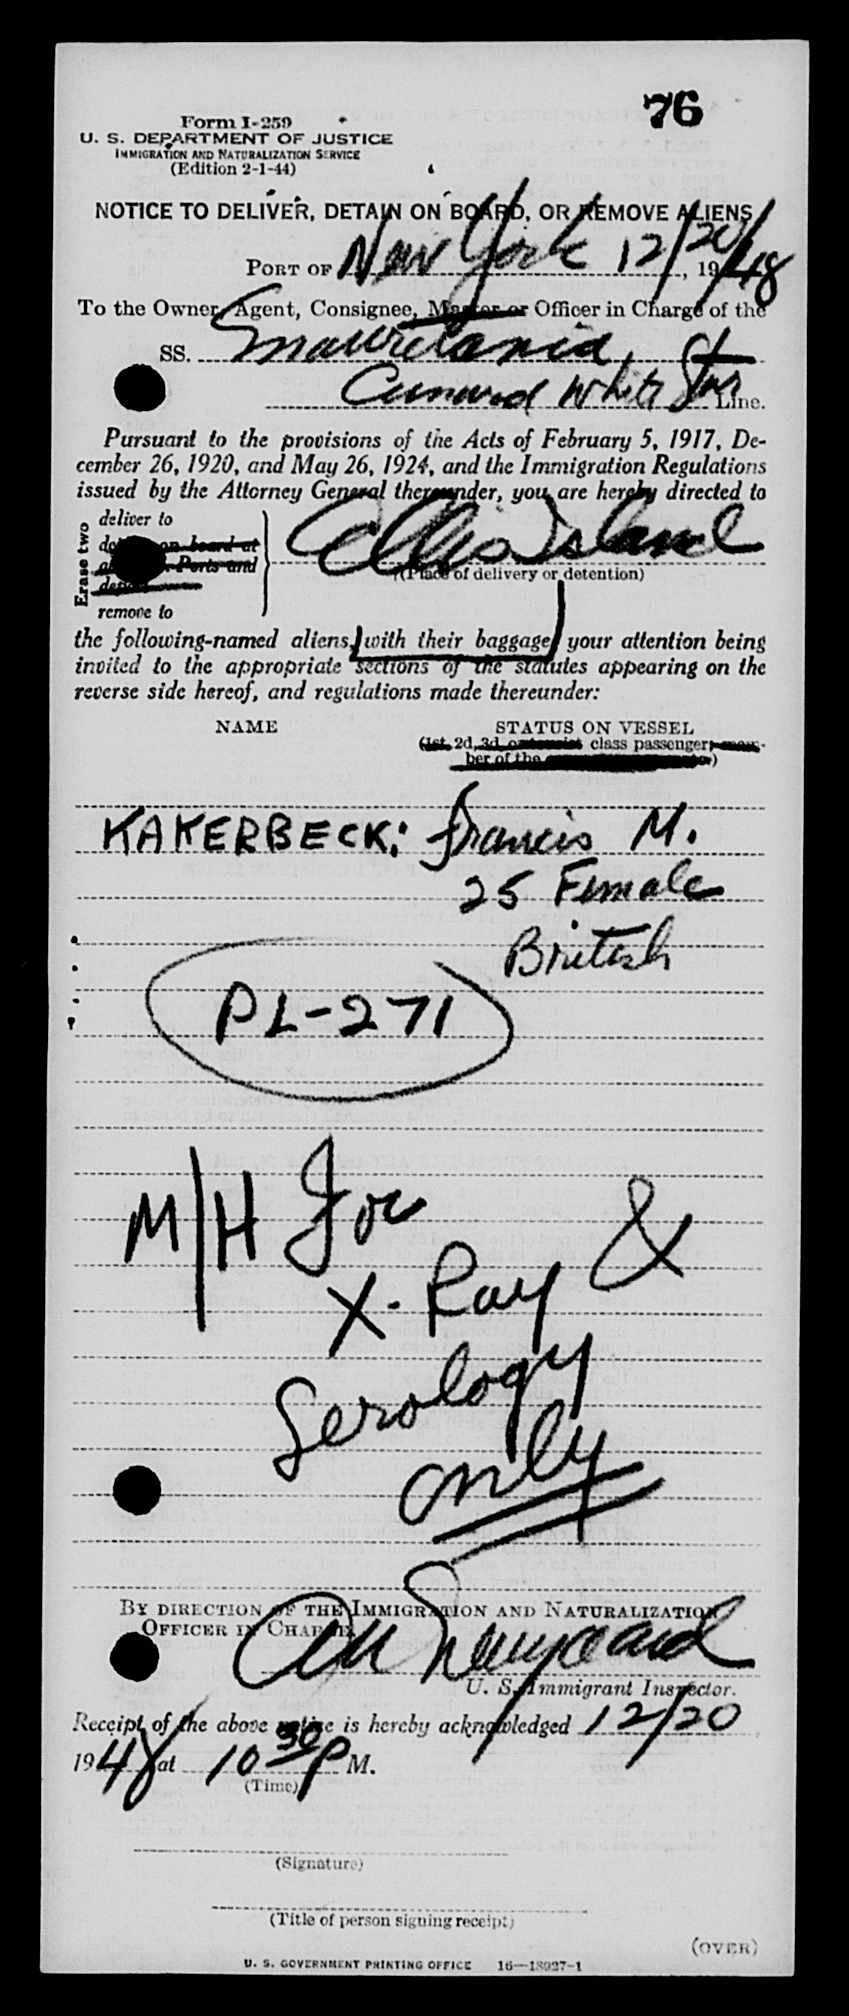 76
Form I-259
U. S. DEPARTMENT OF JUSTICE
IMMIGRATION AND NATURALIZATION SERVICE
(Edition 2-1-44)
NOTICE TO DELIVER, DETAIN ON BOARD, OR REMOVE ALIENS
PORT OF New York 12/20/, 1948
To the Owner, Agent, Consignee, Master or Officer in Charge of the
SS. Mauretania,
Cunard White Star Line.
Pursuant to the provisions of the Acts of February 5, 1917, De-
cember 26, 1920, and May 26, 1924, and the Immigration Regulations
issued by the Attorney General thereunder, you are hereby directed to
Erase two
deliver to
on board at
Ports and
remove to
Ellis Island
(Place of delivery or detention)
the following-named aliens, with their baggage, your attention being
invited to the appropriate sections of the statutes appearing on the
reverse side hereof, and regulations made thereunder:
NAME STATUS ON VESSEL
(1st, 2d, 3d, or tourist class passenger; mem-
ber of the )
KAKERBECK: Francis M.
25 Female
British
PL-271
M/H For
X-Ray &
Serology
only
BY DIRECTION OF THE IMMIGRATION AND NATURALIZATION
OFFICER IN CHARGE
U. S. Immigrant Inspector.
Receipt of the above notice is hereby acknowledged 12/20
1948 at 10 30 P M.
(Time)
(Signature)
(Title of person signing receipt)
(OVER)
U. S. GOVERNMENT PRINTING OFFICE 16—18027-1